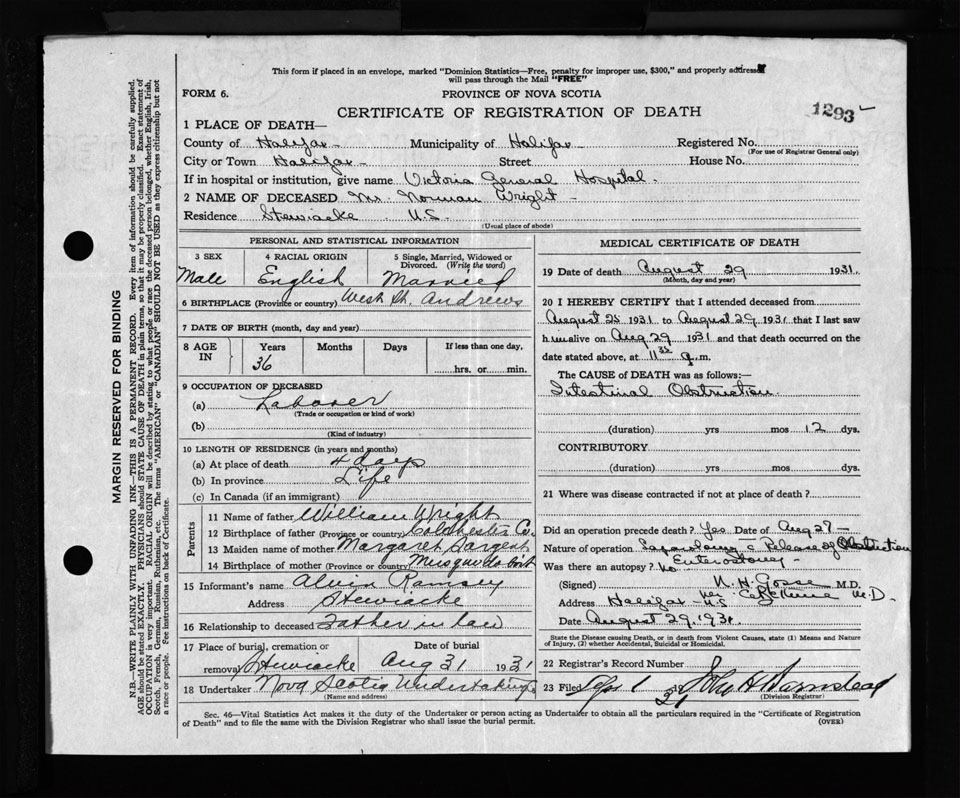 This form if placed in an envelope, marked "Dominion Statistics—Free, penalty for improper use, $300," and properly addressed
will pass through the Mail "FREE"
FORM 6.
PROVINCE OF NOVA SCOTIA
CERTIFICATE OF REGISTRATION OF DEATH
1293
1 PLACE OF DEATH—
County of Halifax Municipality of Halifax Registered No.
(For use of Registrar General only)
City or Town Halifax Street House No.
If in hospital or institution, give name Victoria General Hospital.
2 NAME OF DECEASED Mr. Norman Wright
Residence Stewiacke N.S.
(Usual place of abode)
PERSONAL AND STATISTICAL INFORMATION
3 SEX 4 RACIAL ORIGIN 5 Single, Married, Widowed or
Divorced. (Write the word)
Male English Married
6 BIRTHPLACE (Province or country) West St. Andrews
7 DATE OF BIRTH (month, day and year)
8 AGE IN Years Months Days If less than one day,
36 hrs. or min.
9 OCCUPATION OF DECEASED
(a) Laborer
(Trade or occupation or kind of work)
(b)
(Kind of industry)
10 LENGTH OF RESIDENCE (in years and months)
(a) At place of death 4 days
(b) In province Life
(c) In Canada (if an immigrant)
Parents
11 Name of father William Wright
12 Birthplace of father (Province or country) Colchester Co.
13 Maiden name of mother Margaret
14 Birthplace of mother (Province or country) Musquodoboit
15 Informant's name Alvin Ramsey
Address Stewiacke
16 Relationship to deceased Father in law
17 Place of burial, cremation or Date of burial
removal Stewiacke Aug 31 1931
18 Undertaker Nova Scotia Undertaking Co
(Name and address)
MEDICAL CERTIFICATE OF DEATH
19 Date of death August 29 1931.
(Month, day and year)
20 I HEREBY CERTIFY that I attended deceased from
August 25 1931 to August 29 1931 that I last saw
him alive on Aug 29 1931 and that death occurred on the
date stated above, at 11 m.
The CAUSE of DEATH was as follows:—
Intestinal Obstruction
(duration) yrs mos 12 dys.
CONTRIBUTORY
(duration) yrs mos dys.
21 Where was disease contracted if not at place of death?
Did an operation precede death? Yes Date of Aug 27
Nature of operation Laparotomy c Release of Obstruction
Enterostomy
Was there an autopsy? No
(Signed) N. H. Gosse M.D.
per M.D.
Address Halifax N.S.
Date August 29. 1931.
State the Disease causing Death, or in death from Violent Causes, state (1) Means and Nature
of Injury, (2) whether Accidental, Suicidal or Homicidal.
22 Registrar's Record Number
23 Filed Sept 1 31 John H Barnstead
(Division Registrar)
Sec. 46—Vital Statistics Act makes it the duty of the Undertaker or person acting as Undertaker to obtain all the particulars required in the "Certificate of Registration
of Death" and to file the same with the Division Registrar who shall issue the burial permit.
(OVER)
MARGIN RESERVED FOR BINDING
N.B.—WRITE PLAINLY WITH UNFADING INK—THIS IS A PERMANENT RECORD. Every item of information should be carefully supplied.
AGE should be stated EXACTLY. PHYSICIANS should STATE CAUSE OF DEATH in plain terms, so that it may be properly classified. Exact statement of
OCCUPATION is very important. RACIAL ORIGIN will be described by stating to what people or race the deceased person belonged, whether English, Irish,
Scotch, French, German, Russian, Ruthenian, etc. The terms "AMERICAN" or "CANADIAN" SHOULD NOT BE USED as they express citizenship but not
a race or people. See instructions on back of Certificate.